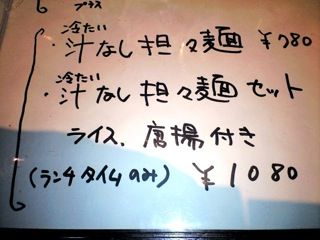 プラス
冷たい
・汁なし担々麺 ¥780
冷たい
・汁なし担々麺セット
ライス、唐揚付き
(ランチタイムのみ) ¥1080